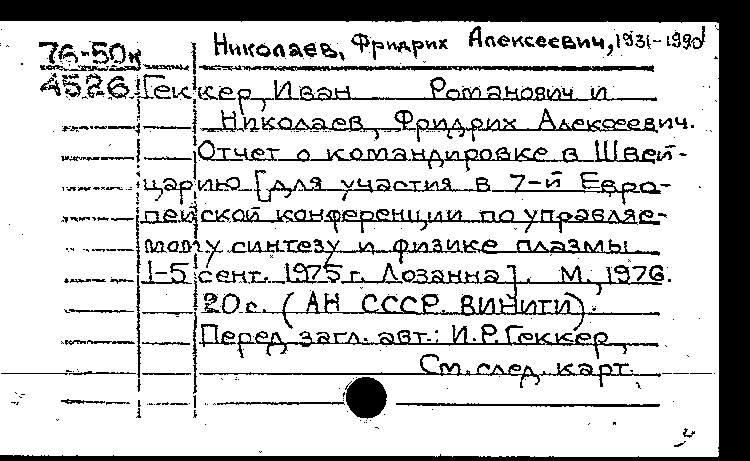 Николаев, Фридрих Алексеевич, 1931-1990
76-50к
4526 Геккер, Иван Романович и
Николаев, Фридрих Алексеевич.
Отчет о командировке в Швей-
царию [для участия в 7-й Евро-
пейской конференции по управляе-
мому синтезу и физике плазмы
1-5 сент. 1975 г. Лозанна]. М., 1976.
20 с. (АН СССР. ВИНИТИ).
Перед загл. авт.: И.Р. Геккер,
См. след. карт.